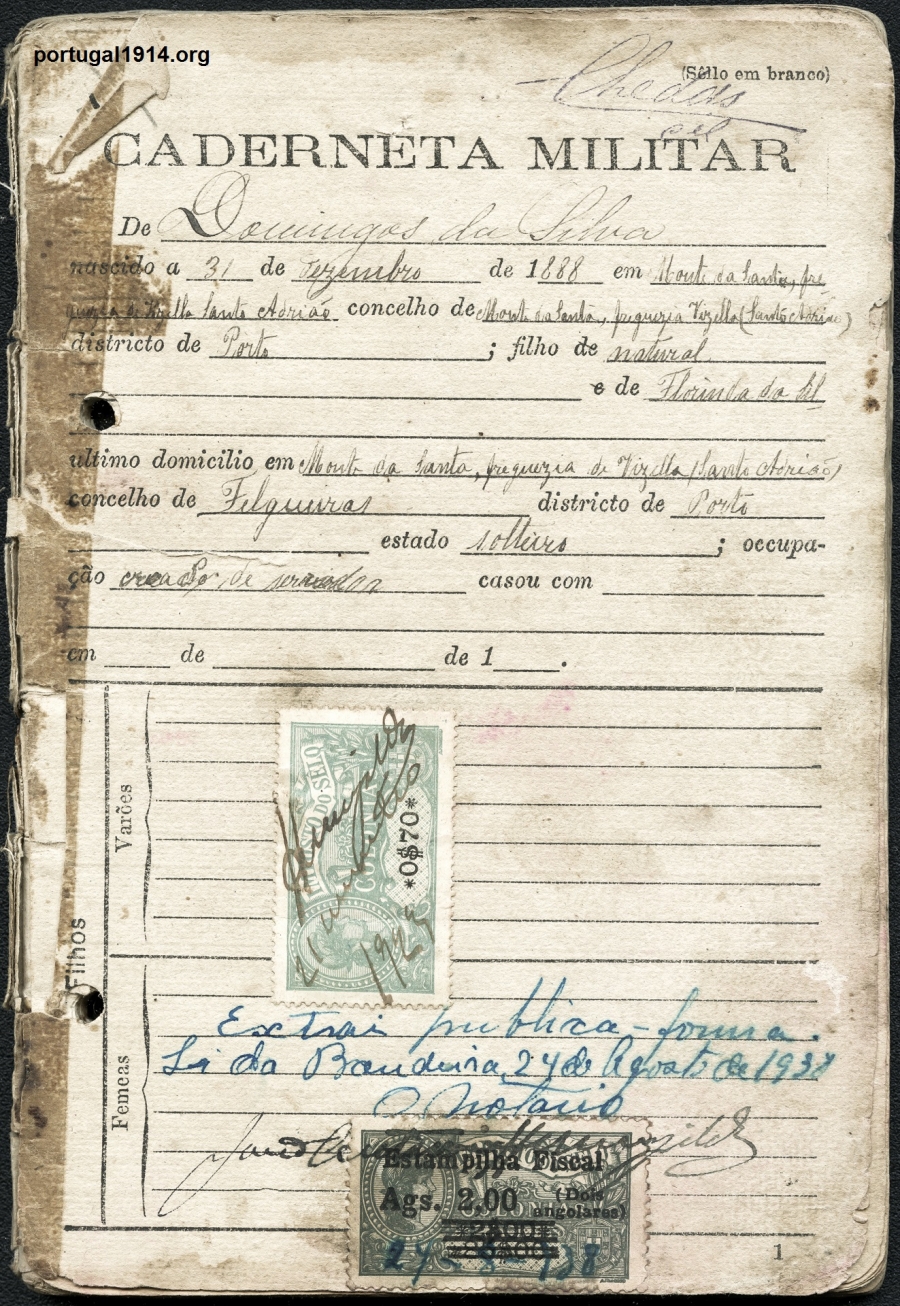 portugal1914.org
(Sêllo em branco)
Chedas
cel
CADERNETA MILITAR
De Domingos da Silva
nascido a 31 de Dezembro de 1888 em Monte da Santa, fre
guezia de Vizella Santo Adrião concelho de Monte da Santa, freguezia Vizella (Santo Adrião)
districto de Porto ; filho de natural
e de Florinda da Sil
ultimo domicilio em Monte da Santa, freguezia de Vizella (Santo Adrião)
concelho de Felgueiras districto de Porto
estado solteiro ; occupa-
ção creado de servir casou com
em de de 1 .
Filhos
Varões
IMPOSTO DO SELO
*0$70*
21
Femeas
Extrai publica-forma.
Sá da Bandeira, 24 de Agosto de 1938
O Notario
Estampilha Fiscal
Ags. 2,00 (Dois angolares)
24-8-938
1